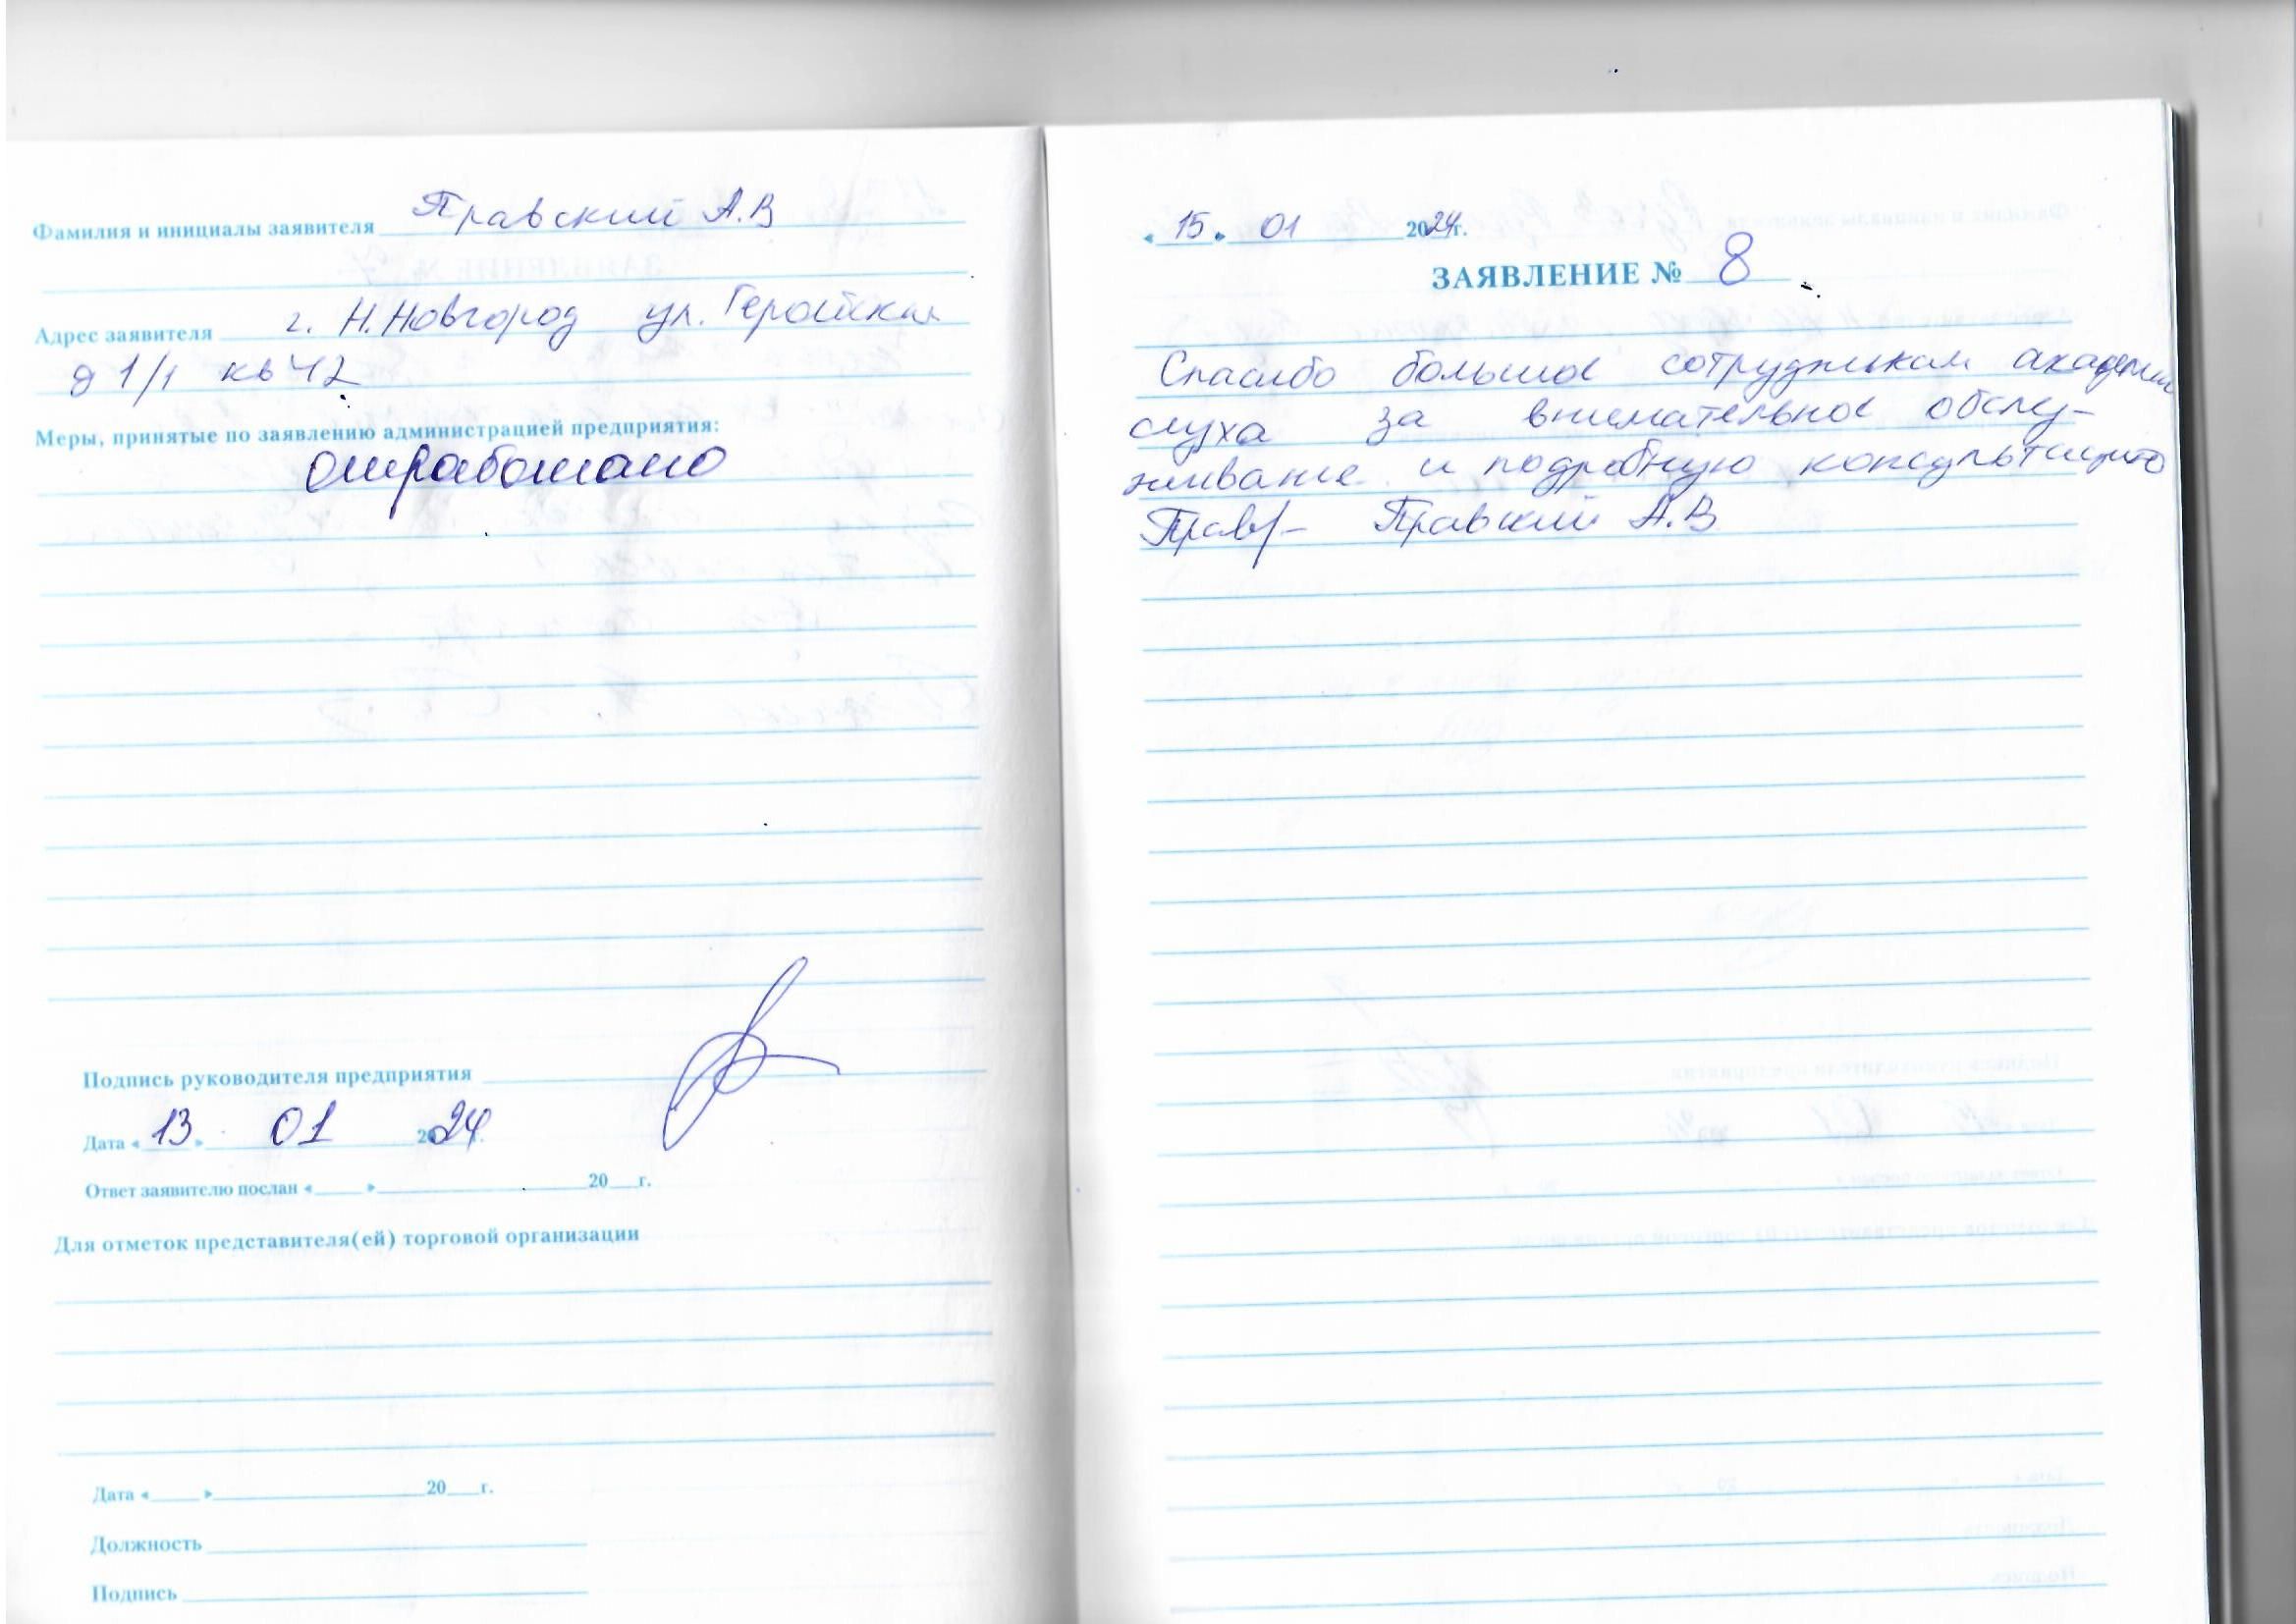 Фамилия и инициалы заявителя Правский А.В
Адрес заявителя г. Н.Новгород ул. Геройская
д 1/1 кв 42
Меры, принятые по заявлению администрацией предприятия:
отработано
Подпись руководителя предприятия
Дата «13» 01 2024г.
Ответ заявителю послан «____»____________20___г.
Для отметок представителя(ей) торговой организации
Дата «____»____________20___г.
Должность
Подпись
«15» 01 2024г.
ЗАЯВЛЕНИЕ № 8
Спасибо большое сотрудникам академии
слуха за внимательное обслу-
живание и подробную консультацию
Правский А.В